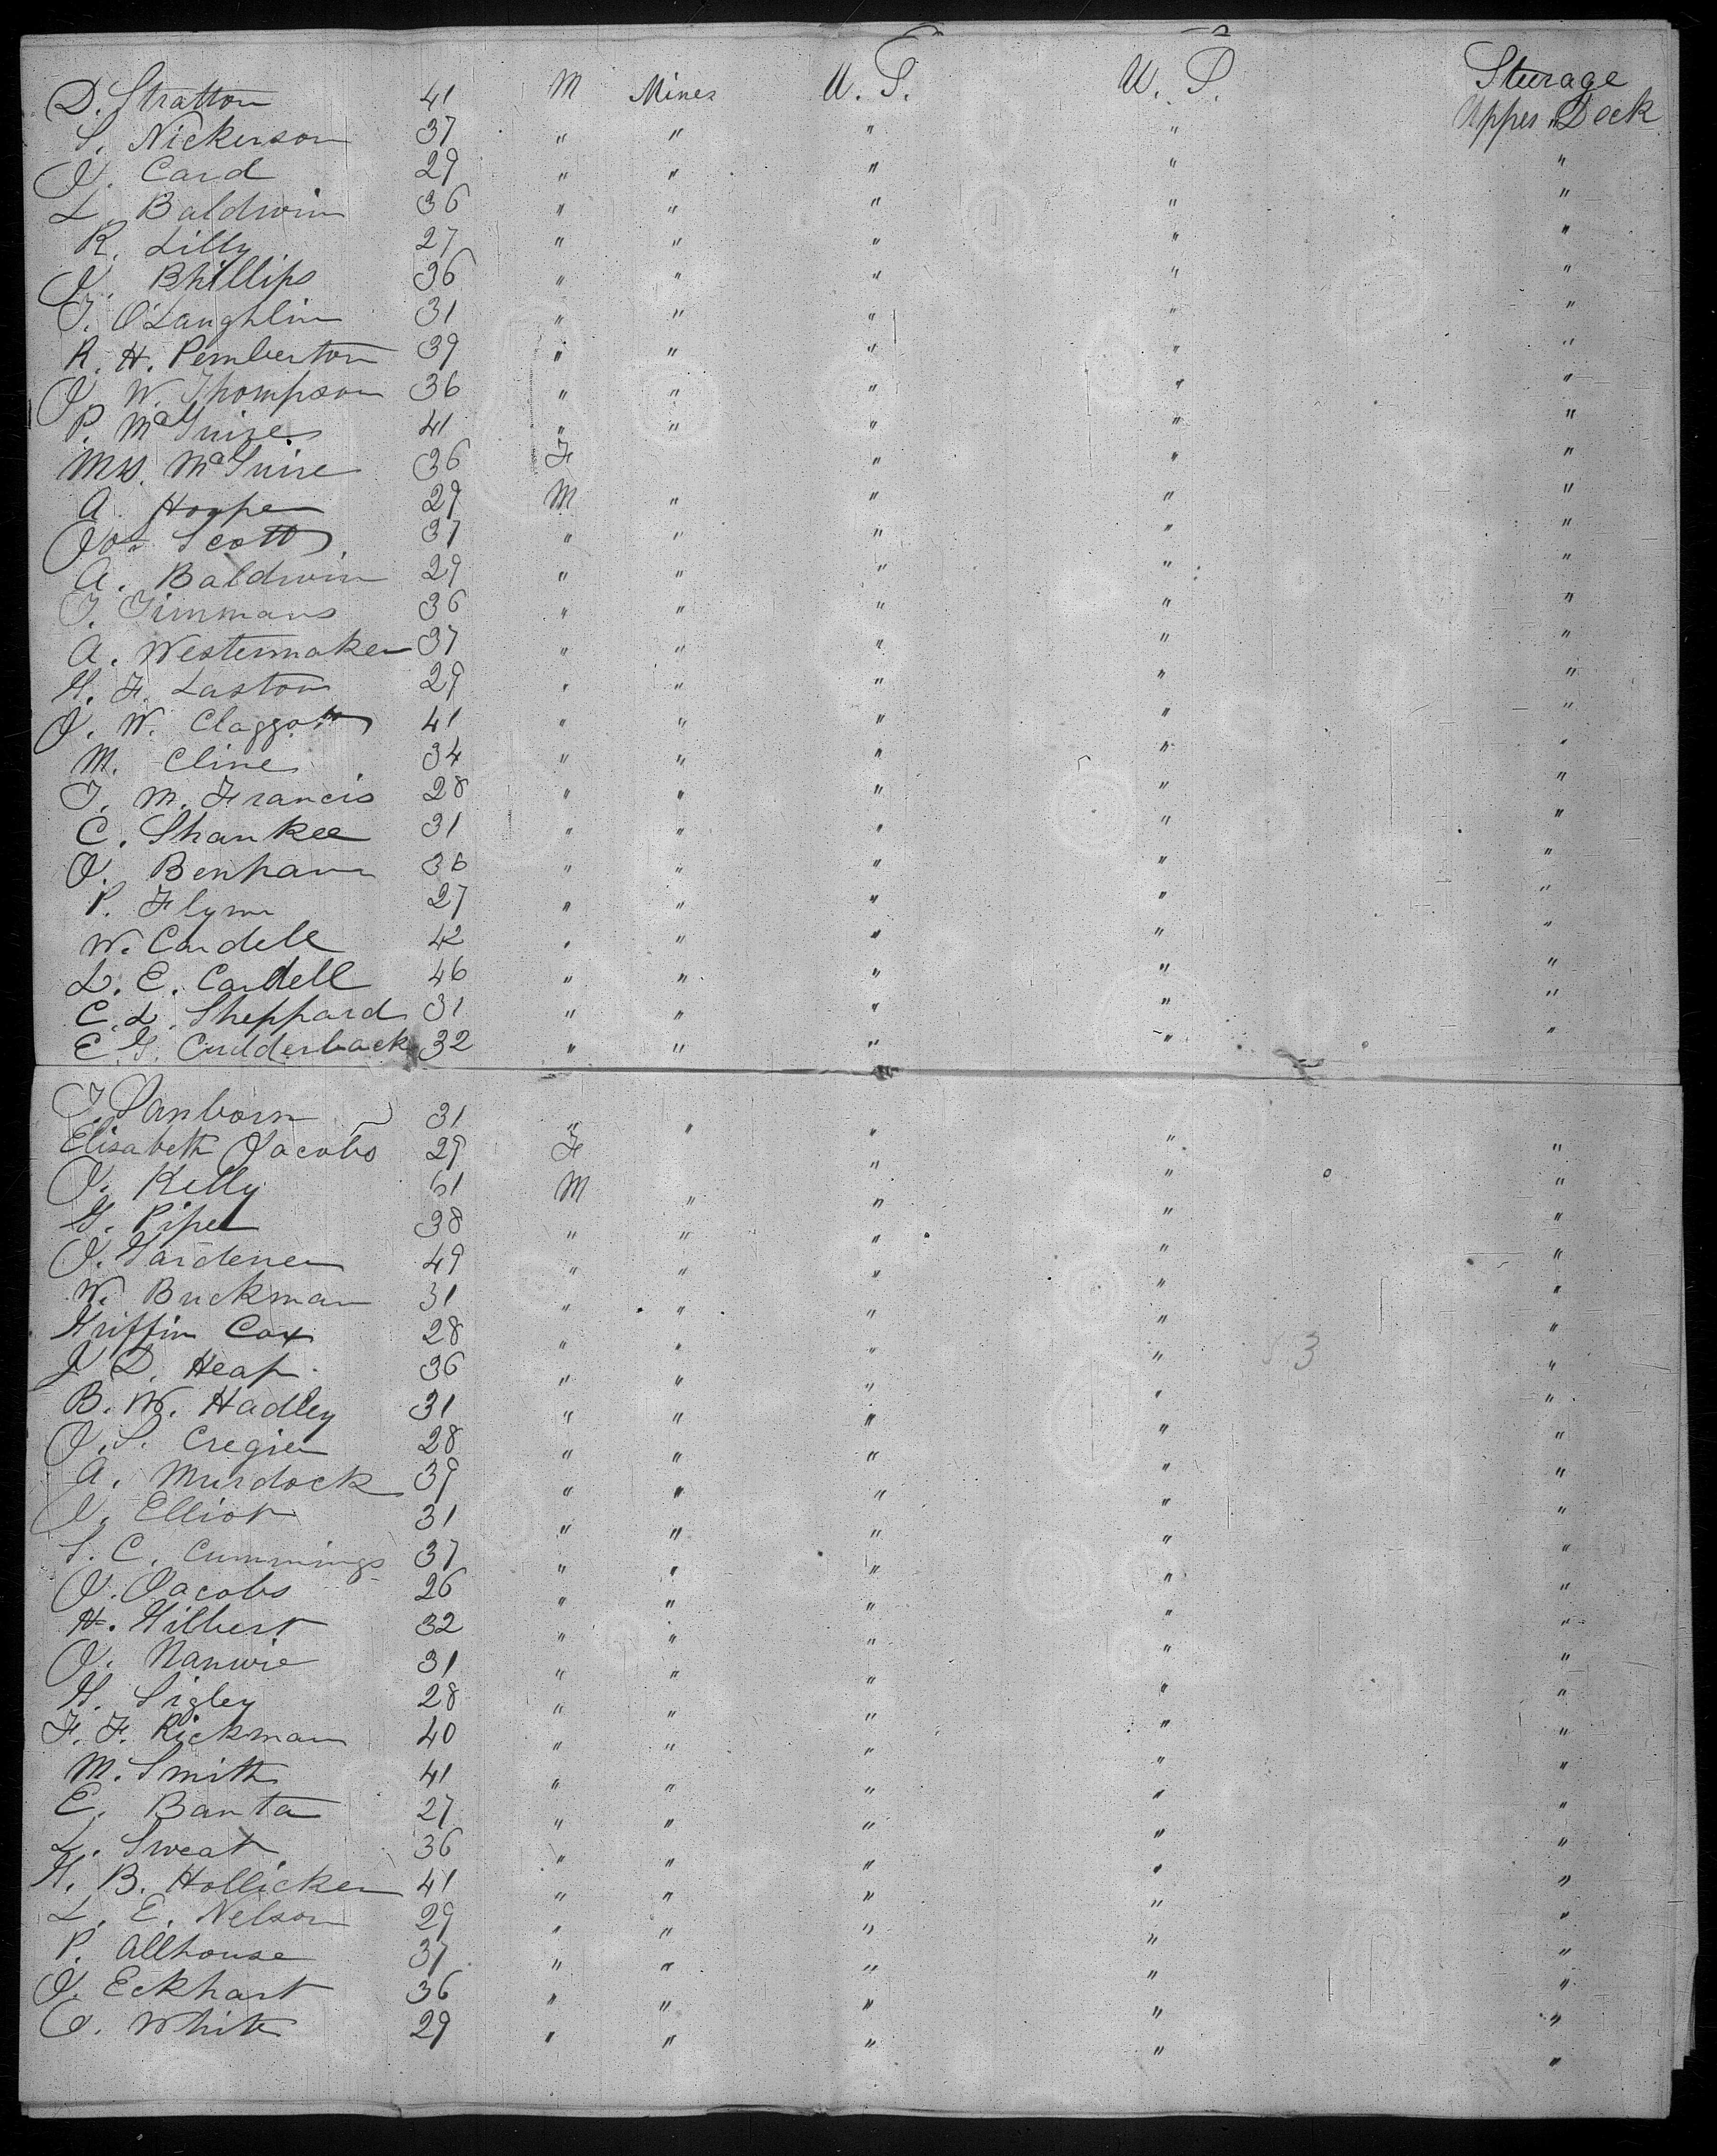 D. Stratton 41 M Miner U. S. U. S. Steerage
S. Nickerson 37 " " " " Upper Deck
J. Card 29 " " " " "
L. Baldwin 36 " " " " "
R. Lilly 27 " " " " "
J. Phillips 36 " " " " "
T. O'Laughlin 31 " " " " "
R. H. Pemberton 39 " " " " "
J. W. Thompson 36 " " " " "
P. McGuire 41 " " " " "
Mrs. McGuire 36 F " " "
A. Hooper 29 M " " " "
Jos Scott 37 " " " " "
A. Baldwin 29 " " " " "
T. Timmans 36 " " " " "
A. Westermaker 37 " " " " "
G. F. Laston 29 " " " " "
J. W. Claggott 41 " " " " "
M. Cline 34 " " " " "
T. M. Francis 28 " " " " "
C. Shankee 31 " " " " "
J. Benham 36 " " " " "
P. Flynn 27 " " " " "
W. Cardell 42 " " " " "
L. E. Cardell 46 " " " " "
C. L. Sheppard 31 " " " " "
E. G. Cudderback 32 " " " " "
T. Sanborn 31 " " " "
Elisabeth Jacobs 29 F " " "
J. Kelly 61 M " " " "
G. Piper 38 " " " " "
J. Gardener 49 " " " " "
W. Buckman 31 " " " " "
Griffin Cox 28 " " " " "
J. D. Heap 36 " " " " "
B. W. Hadley 31 " " " " "
J. S. Cregier 28 " " " " "
A. Murdock 39 " " " " "
J. Elliot 31 " " " " "
S. C. Cummings 37 " " " " "
J. Jacobs 26 " " " " "
H. Gilbert 32 " " " " "
J. Nanwie 31 " " " " "
G. Sigley 28 " " " " "
F. F. Rickman 40 " " " " "
M. Smith 41 " " " " "
E. Banta 27 " " " " "
L. Sweat 36 " " " " "
G. B. Hollicker 41 " " " " "
L. E. Nelson 29 " " " " "
P. Allhouse 37 " " " " "
J. Eckhart 36 " " " " "
O. White 29 " " " " "